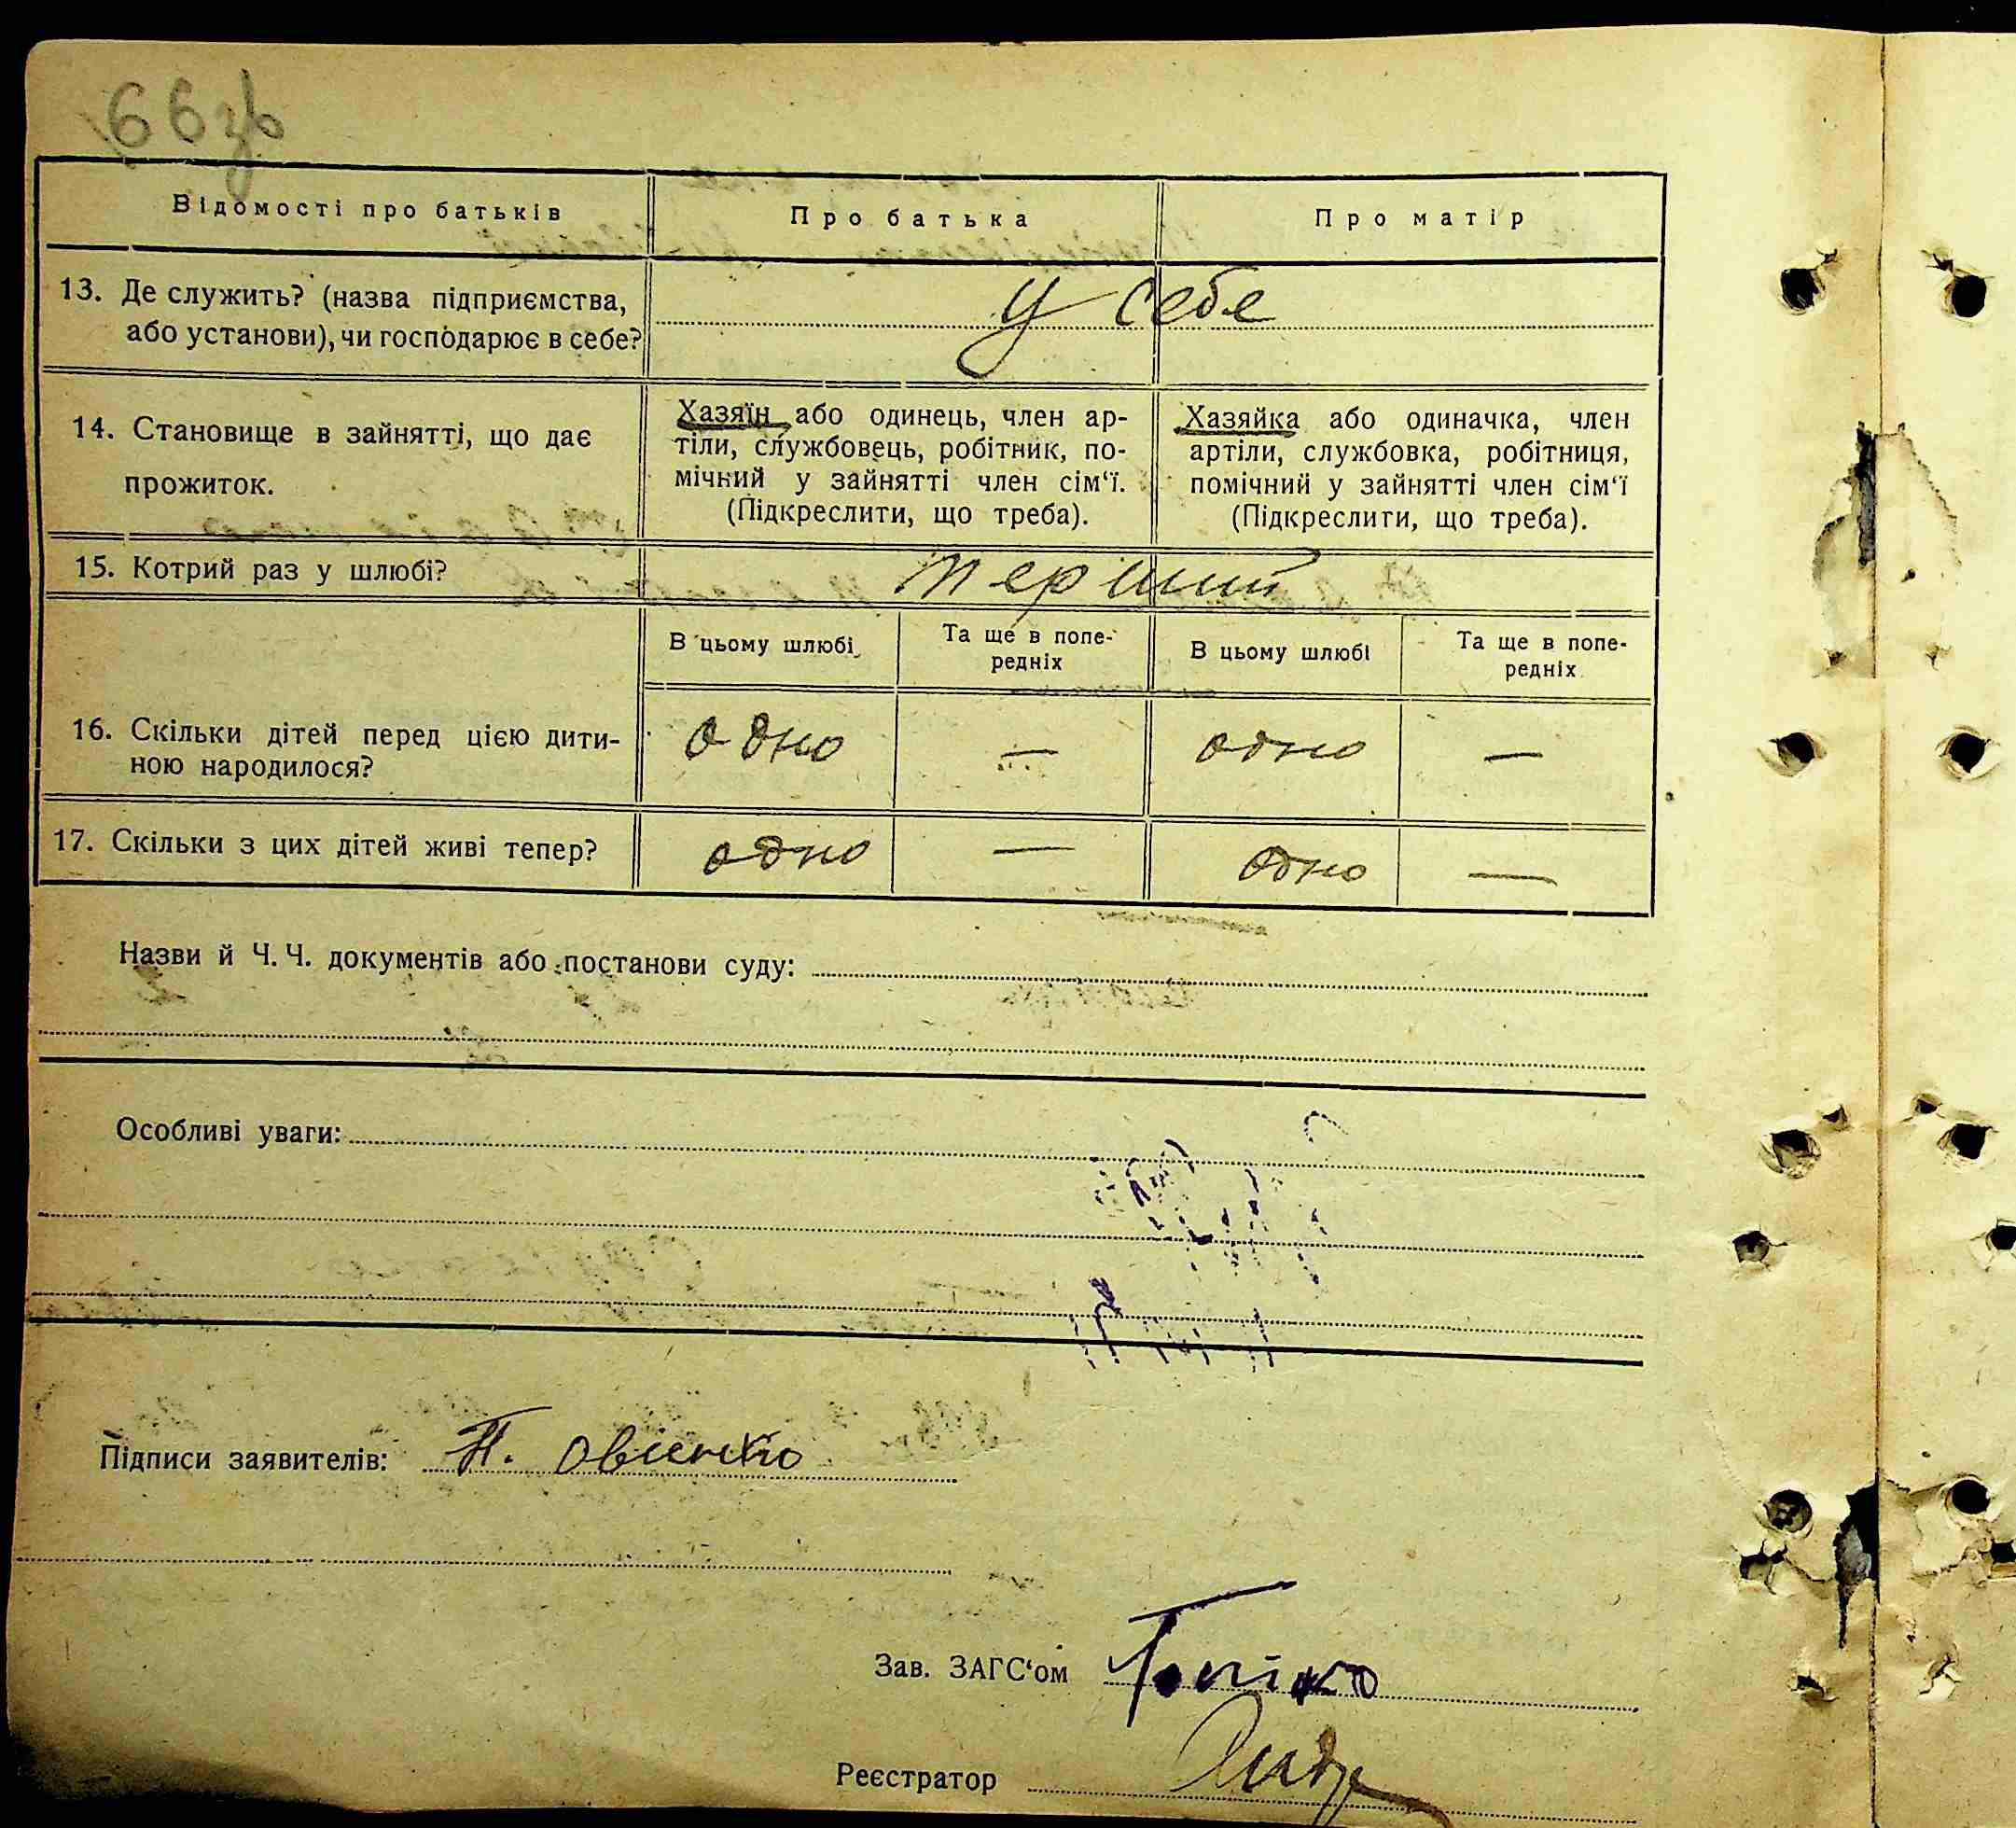 66 зв
Відомості про батьків
Про батька
Про матір
13. Де служить? (назва підприємства,
або установи), чи господарює в себе?
у себе
14. Становище в зайнятті, що дає
прожиток.
Хазяїн або одинець, член ар-
тіли, службовець, робітник, по-
мічний у зайнятті член сім‘ї.
(Підкреслити, що треба).
Хазяйка або одиначка, член
артіли, службовка, робітниця,
помічний у зайнятті член сім‘ї
(Підкреслити, що треба).
15. Котрий раз у шлюбі?
перший
В цьому шлюбі
Та ще в попе-
редніх
В цьому шлюбі
Та ще в попе-
редніх
16. Скільки дітей перед цією дити-
ною народилося?
одно
—
одно
—
17. Скільки з цих дітей живі тепер?
одно
—
одно
—
Назви й Ч. Ч. документів або постанови суду:
Особливі уваги:
Підписи заявителів:
Зав. ЗАГС‘ом
Реєстратор